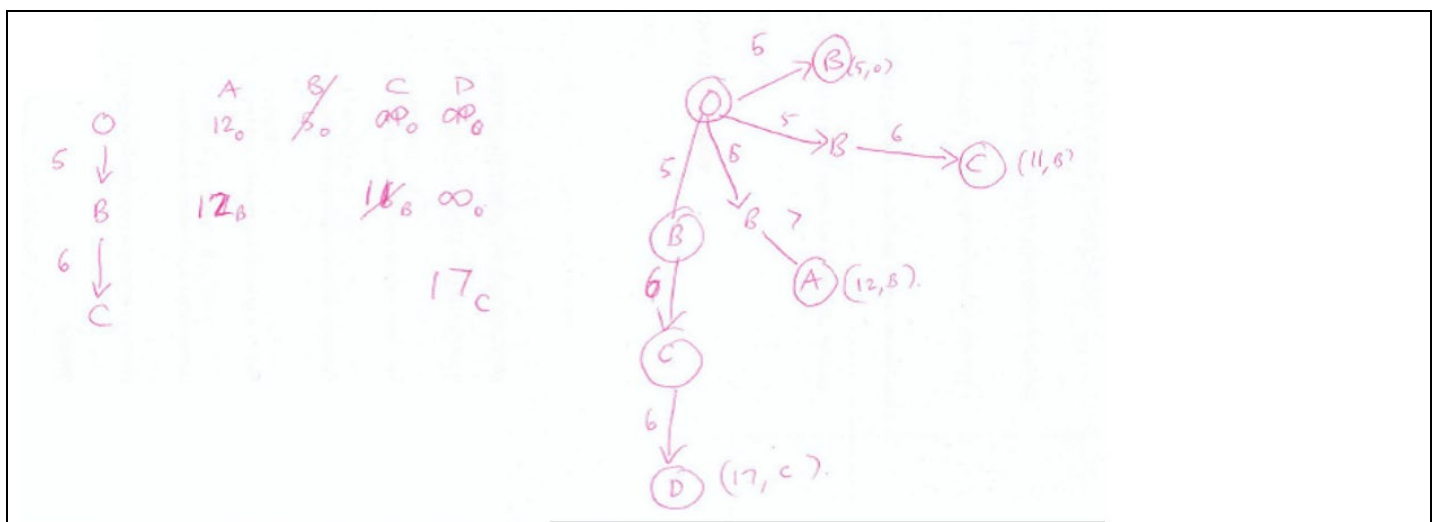 A B C D
O 12₀ 5₀ ∞₀ ∞₀
5
B 12B 11B ∞₀
6
C 17C
5
B (5,0)
O
5 B 6 C (11,B)
5 5
B B 7
6 A (12,B).
C
6
D (17, C).